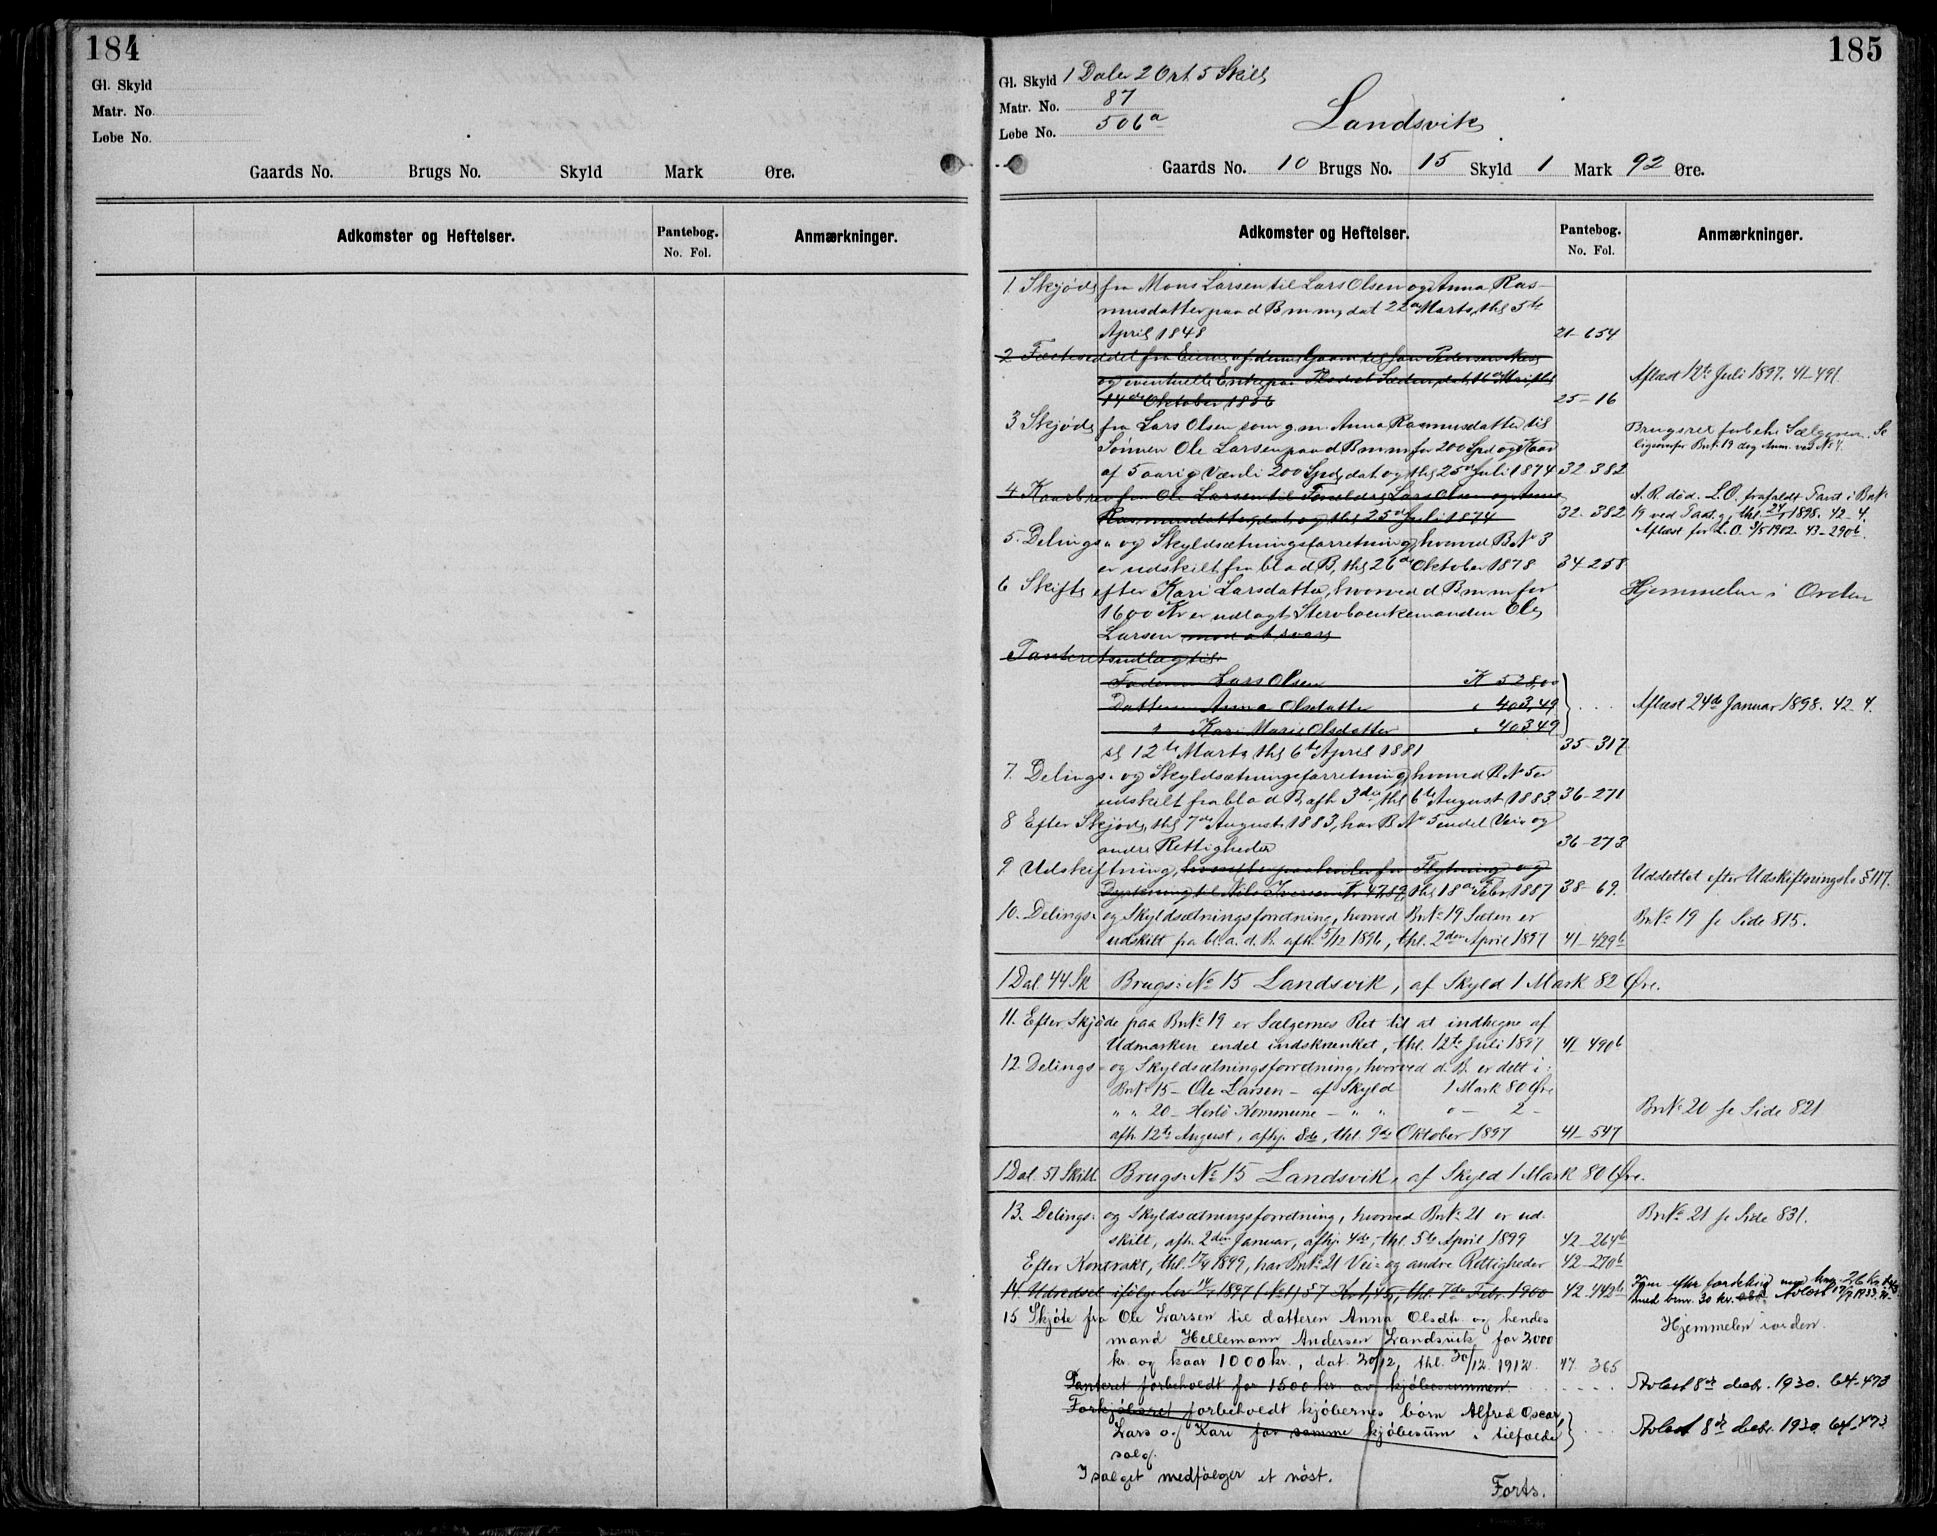 184
Gl. Skyld
Matr. No.
Løbe No.
Gaards No. Brugs No. Skyld Mark Øre.
Adkomster og Heftelser. Pantebog. Anmærkninger.
No. Fol.
185
Gl. Skyld 1 Daler 2 Ort 5 Skill
Matr. No. 87
Løbe No. 506a
Landsvik
Gaards No. 10 Brugs No. 15 Skyld 1 Mark 92 Øre.
Adkomster og Heftelser. Pantebog. Anmærkninger.
No. Fol.
1. Skjøde fra Mons Larsen til Lars Olsen og Anna Ras-
musdatter paa d B m m, dat 22de Marts, thl 5te
April 1848 21-654
2 Fæsteseddel fra Eieren af denne Gaard til
og eventuelle Enke paa
14de Oktober 1856 25-16 Aflæst 12te Juli 1897. 41-491.
3 Skjøde fra Lars Olsen som g. m. Anna Rasmusdatter til
Sønnen Ole Larsen paa d B m m for 200 Spd og Kaar
af 5 aarig Værdi 200 Spd, dat og thl 25de Juli 1874 32-382
Brugsret forbeh. Sælgeren. Se
Bn№ 19 og Anm. ved № 4.
4 Kaarbrev fra Ole Larsen til Forældre Lars Olsen og Anna
Rasmusdatter, dat og thl 25de Juli 1874 32-382
A. R. død. L. O. frafaldt Pant i Bn№
19 ved Paateg. thl. 24/1 1898. 42-4.
Aflæst for L. O. 3/5 1902. 43-290b.
5. Delings- og Skyldsætningsforretning, hvorved B № 3
er udskilt fra bl a d B, thl 26de Oktober 1878 34-258
6 Skifte efter Kari Larsdatter, hvorved d B m m for
1600 Kr er udlagt Sterboenkemanden Ole
Larsen mod at svare
Hjemmelen i Orden
Panteretsudlæg til:
Faderen Lars Olsen K 528,00
Datteren Anna Olsdatter " 403,49
" Kari Marie Olsdatter " 403,49
Aflæst 24de Januar 1898. 42-4.
sl 12te Marts, thl 6te April 1881 35-317
7. Delings- og Skyldsætningsforretning, hvorved B № 5 er
udskilt fra bl a d B, afh 3die, thl 6te August 1883. 36-271
8 Efter Skjøde, thl 7de August 1883, har B № 5 endel Vei- og
andre Rettigheder 36-273
9. Udskiftning, hvorefter paahviler for Flytning og
Dyrkning til Nils Iversen Kr 47,89, thl 18de Febr 1887 38-69.
Udslettet efter Udskiftningsl. § 117.
10. Delings- og Skyldsætningsforretning, hvorved Bn№ 19 Sæten er
udskilt fra bl. a. d. B. afh. 5/12 1896, thl. 2den April 1897 41-429b
Bn№ 19 se Side 815.
1 Dal. 44 Sk Brugs: № 15 Landsvik, af Skyld 1 Mark 82 Øre.
11. Efter Skjøde paa Bn№ 19 er Sælgernes Ret til at indhegne af
Udmarken endel indskrænket, thl. 12te Juli 1897 41-490b
12. Delings- og Skyldsætningsforretning, hvorved d. B. er delt i:
Bn№ 15 - Ole Larsen - af Skyld 1 Mark 80 Øre
" " 20 - Herlø Kommune - " " 0 - 2 -
afh. 12te August, afhj. 8de, thl. 9de Oktober 1897 41-547
Bn№ 20 se Side 821
1 Dal. 51 Skill. Brugs: № 15 Landsvik, af Skyld 1 Mark 80 Øre.
13. Delings- og Skyldsætningsforretning, hvorved Bn№ 21 er ud-
skilt, afh. 2den Januar, afhj. 4de, thl. 5te April 1899 42-264b
Bn№ 21 se Side 831.
Efter Kontrakt, thl. 17/4 1899, har Bn№ 21 Vei- og andre Rettigheder 42-270b
14. Udredsel ifølge Lov 14/7 1897 (№ 1) § 7 Kr. 1,45, thl. 7de Febr. 1900 42-442b
15 Skjøte fra Ole Larsen til datteren Anna Olsdtr og hendes
mand Hellemann Andersen Landsvik for 2000
kr. og kaar 1000 kr., dat. 20/12, thl. 30/12. 1912. 47. 365
Hjemmelen i orden.
Panteret forbeholdt for 1500 kr. av kjøbesummen. Avlest 8de decbr. 1930. 64-473
Forkjøbsret forbeholdt kjøbernes børn Alfred Oscar,
Lars og Kari for samme kjøbesum i tilfælde
salg. Avlest 8de decbr. 1930. 64-473
I salget medfølger et nøst.
Forts.